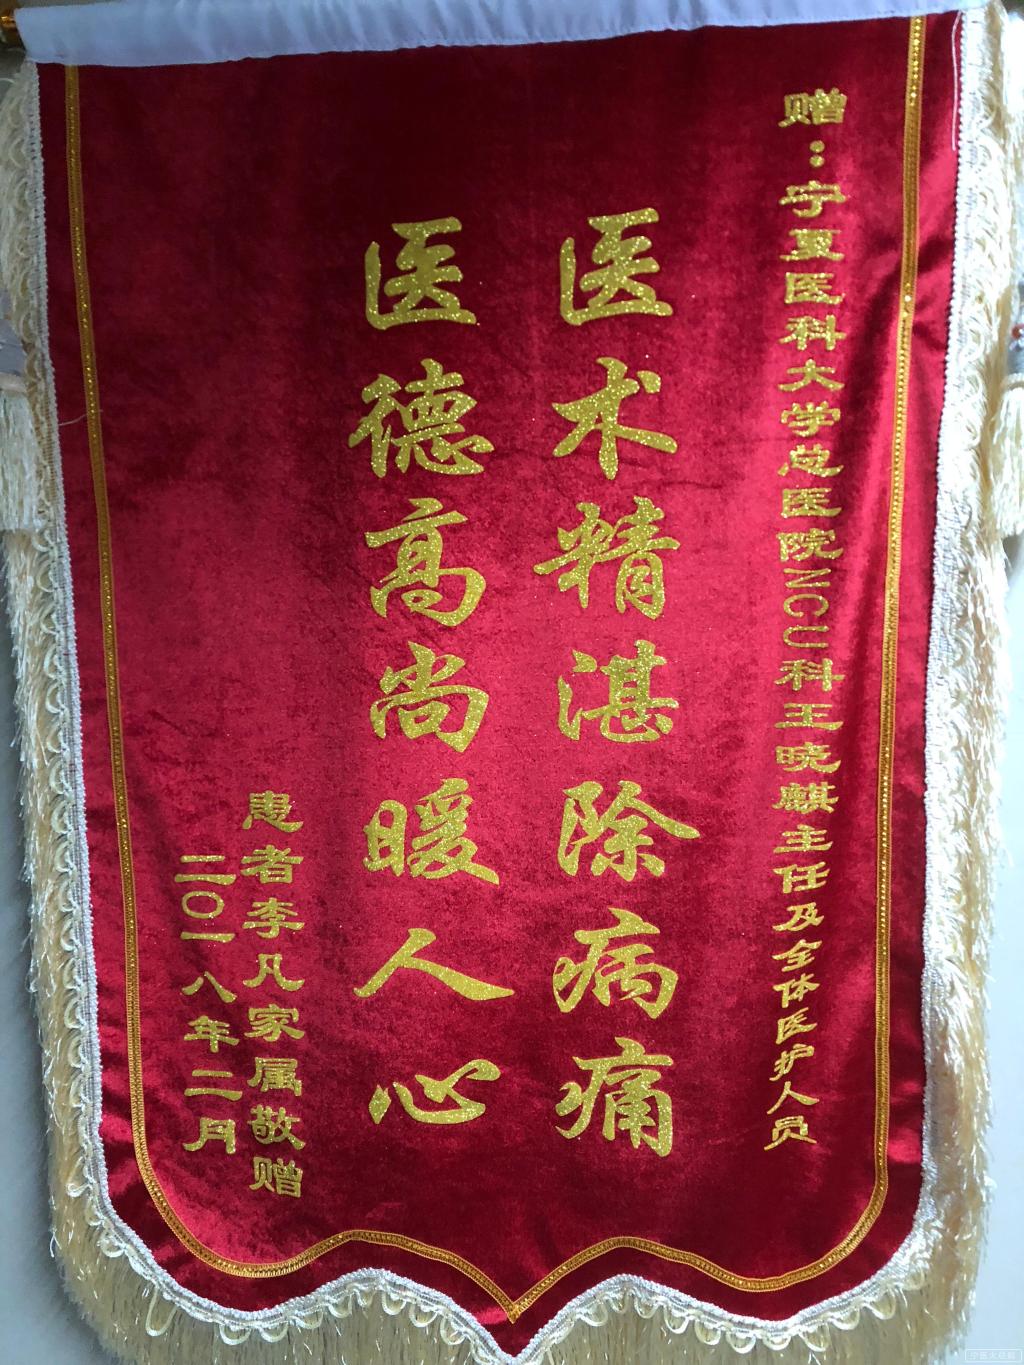 赠：宁夏医科大学总医院NCU科王晓麒主任及全体医护人员
医术精湛除病痛
医德高尚暖人心
患者李凡家属敬赠
二〇一八年二月